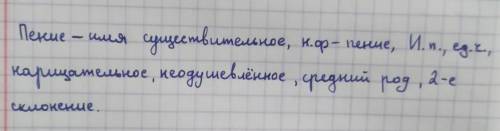 Пение – имя существительное, н.ф – пение, И.п., ед.ч.,
нарицательное, неодушевлённое, средний род, 2-е
склонение.